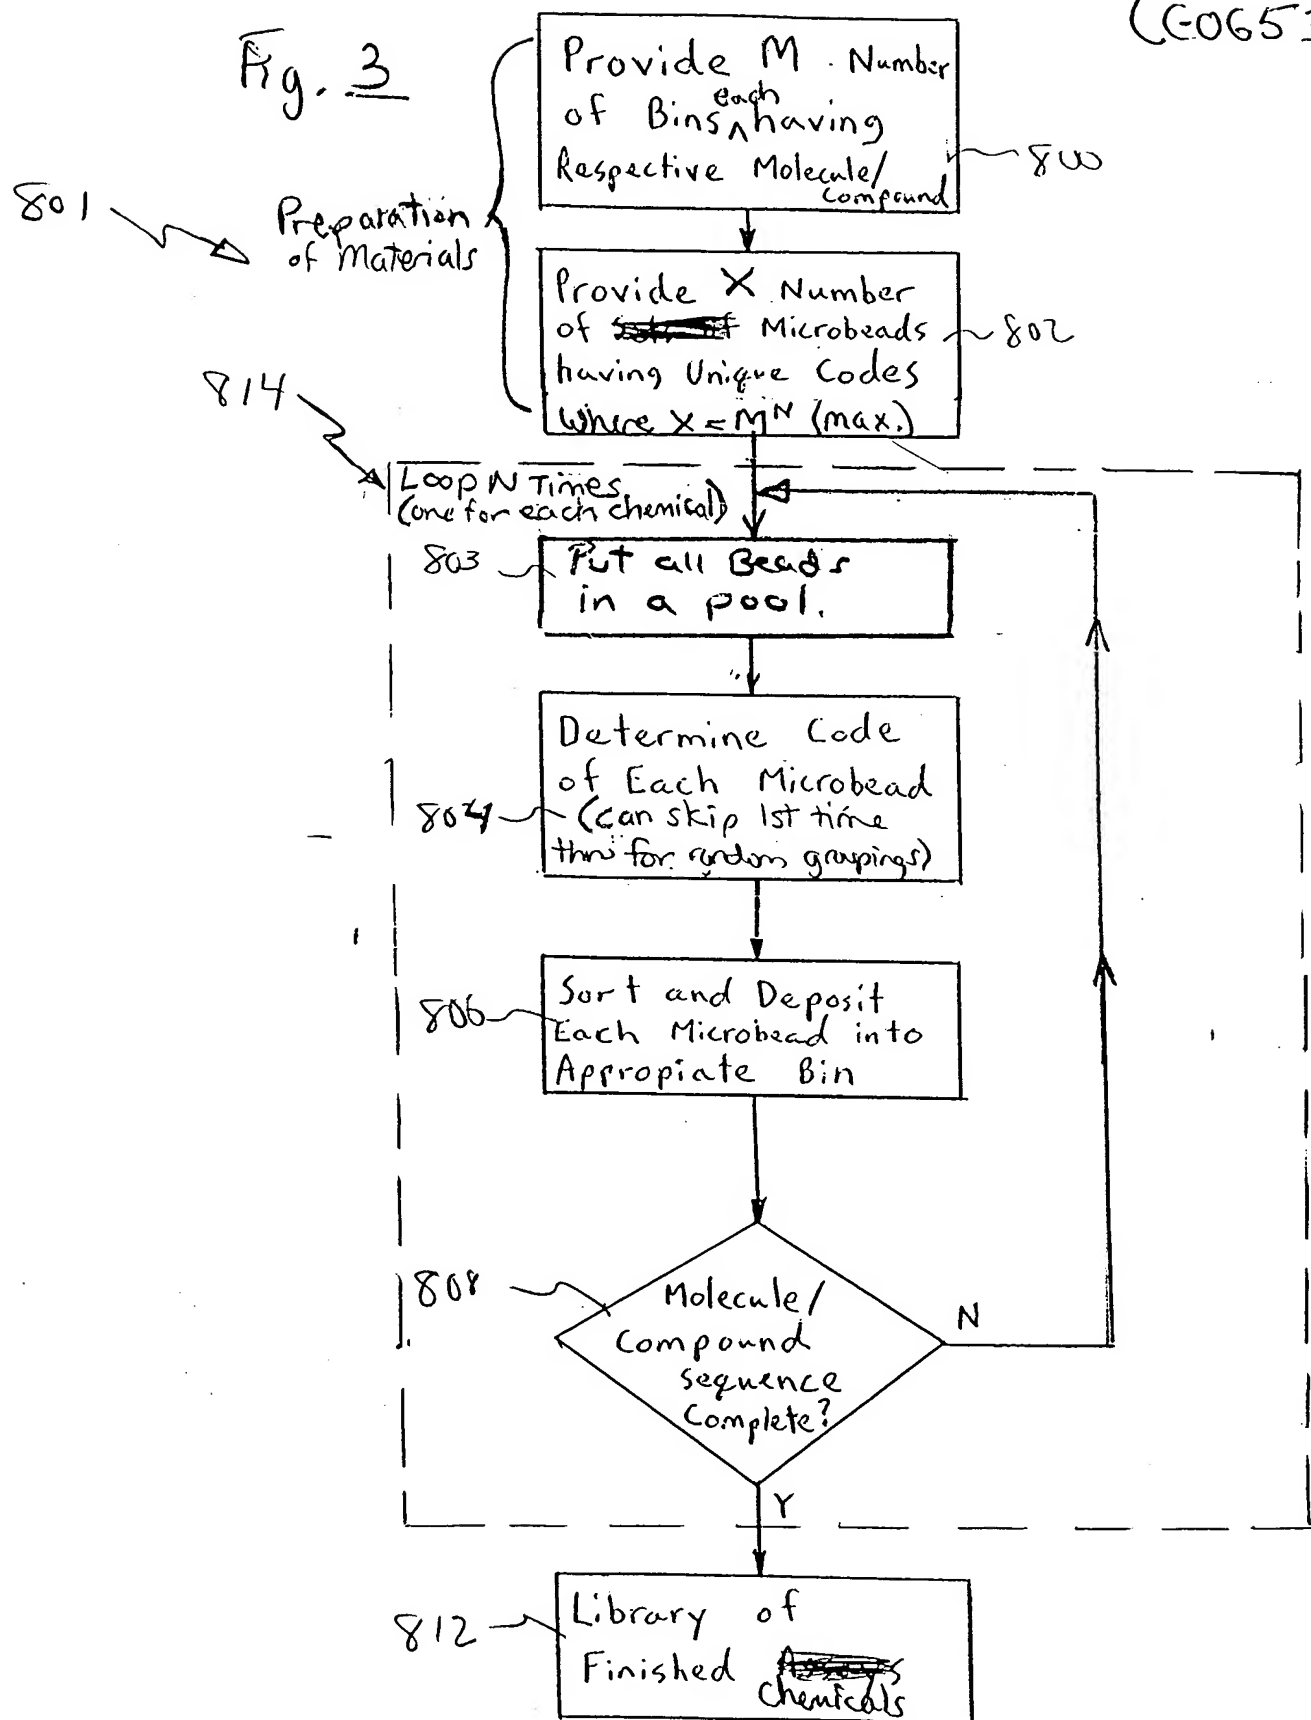 (CE0653
Fig. 3
Provide M Number
of Bins each having
Respective Molecule/
Compound
800
801
Preparation
of Materials
Provide X Number
of Microbeads
having Unique Codes
Where X = M^N (max.)
802
814
Loop N Times
(one for each chemical)
803
Put all Beads
in a pool.
Determine Code
of Each Microbead
(can skip 1st time
thru for random groupings)
804
806
Sort and Deposit
Each Microbead into
Appropiate Bin
808
Molecule/
Compound
sequence
Complete?
N
Y
812
Library of
Finished
Chemicals